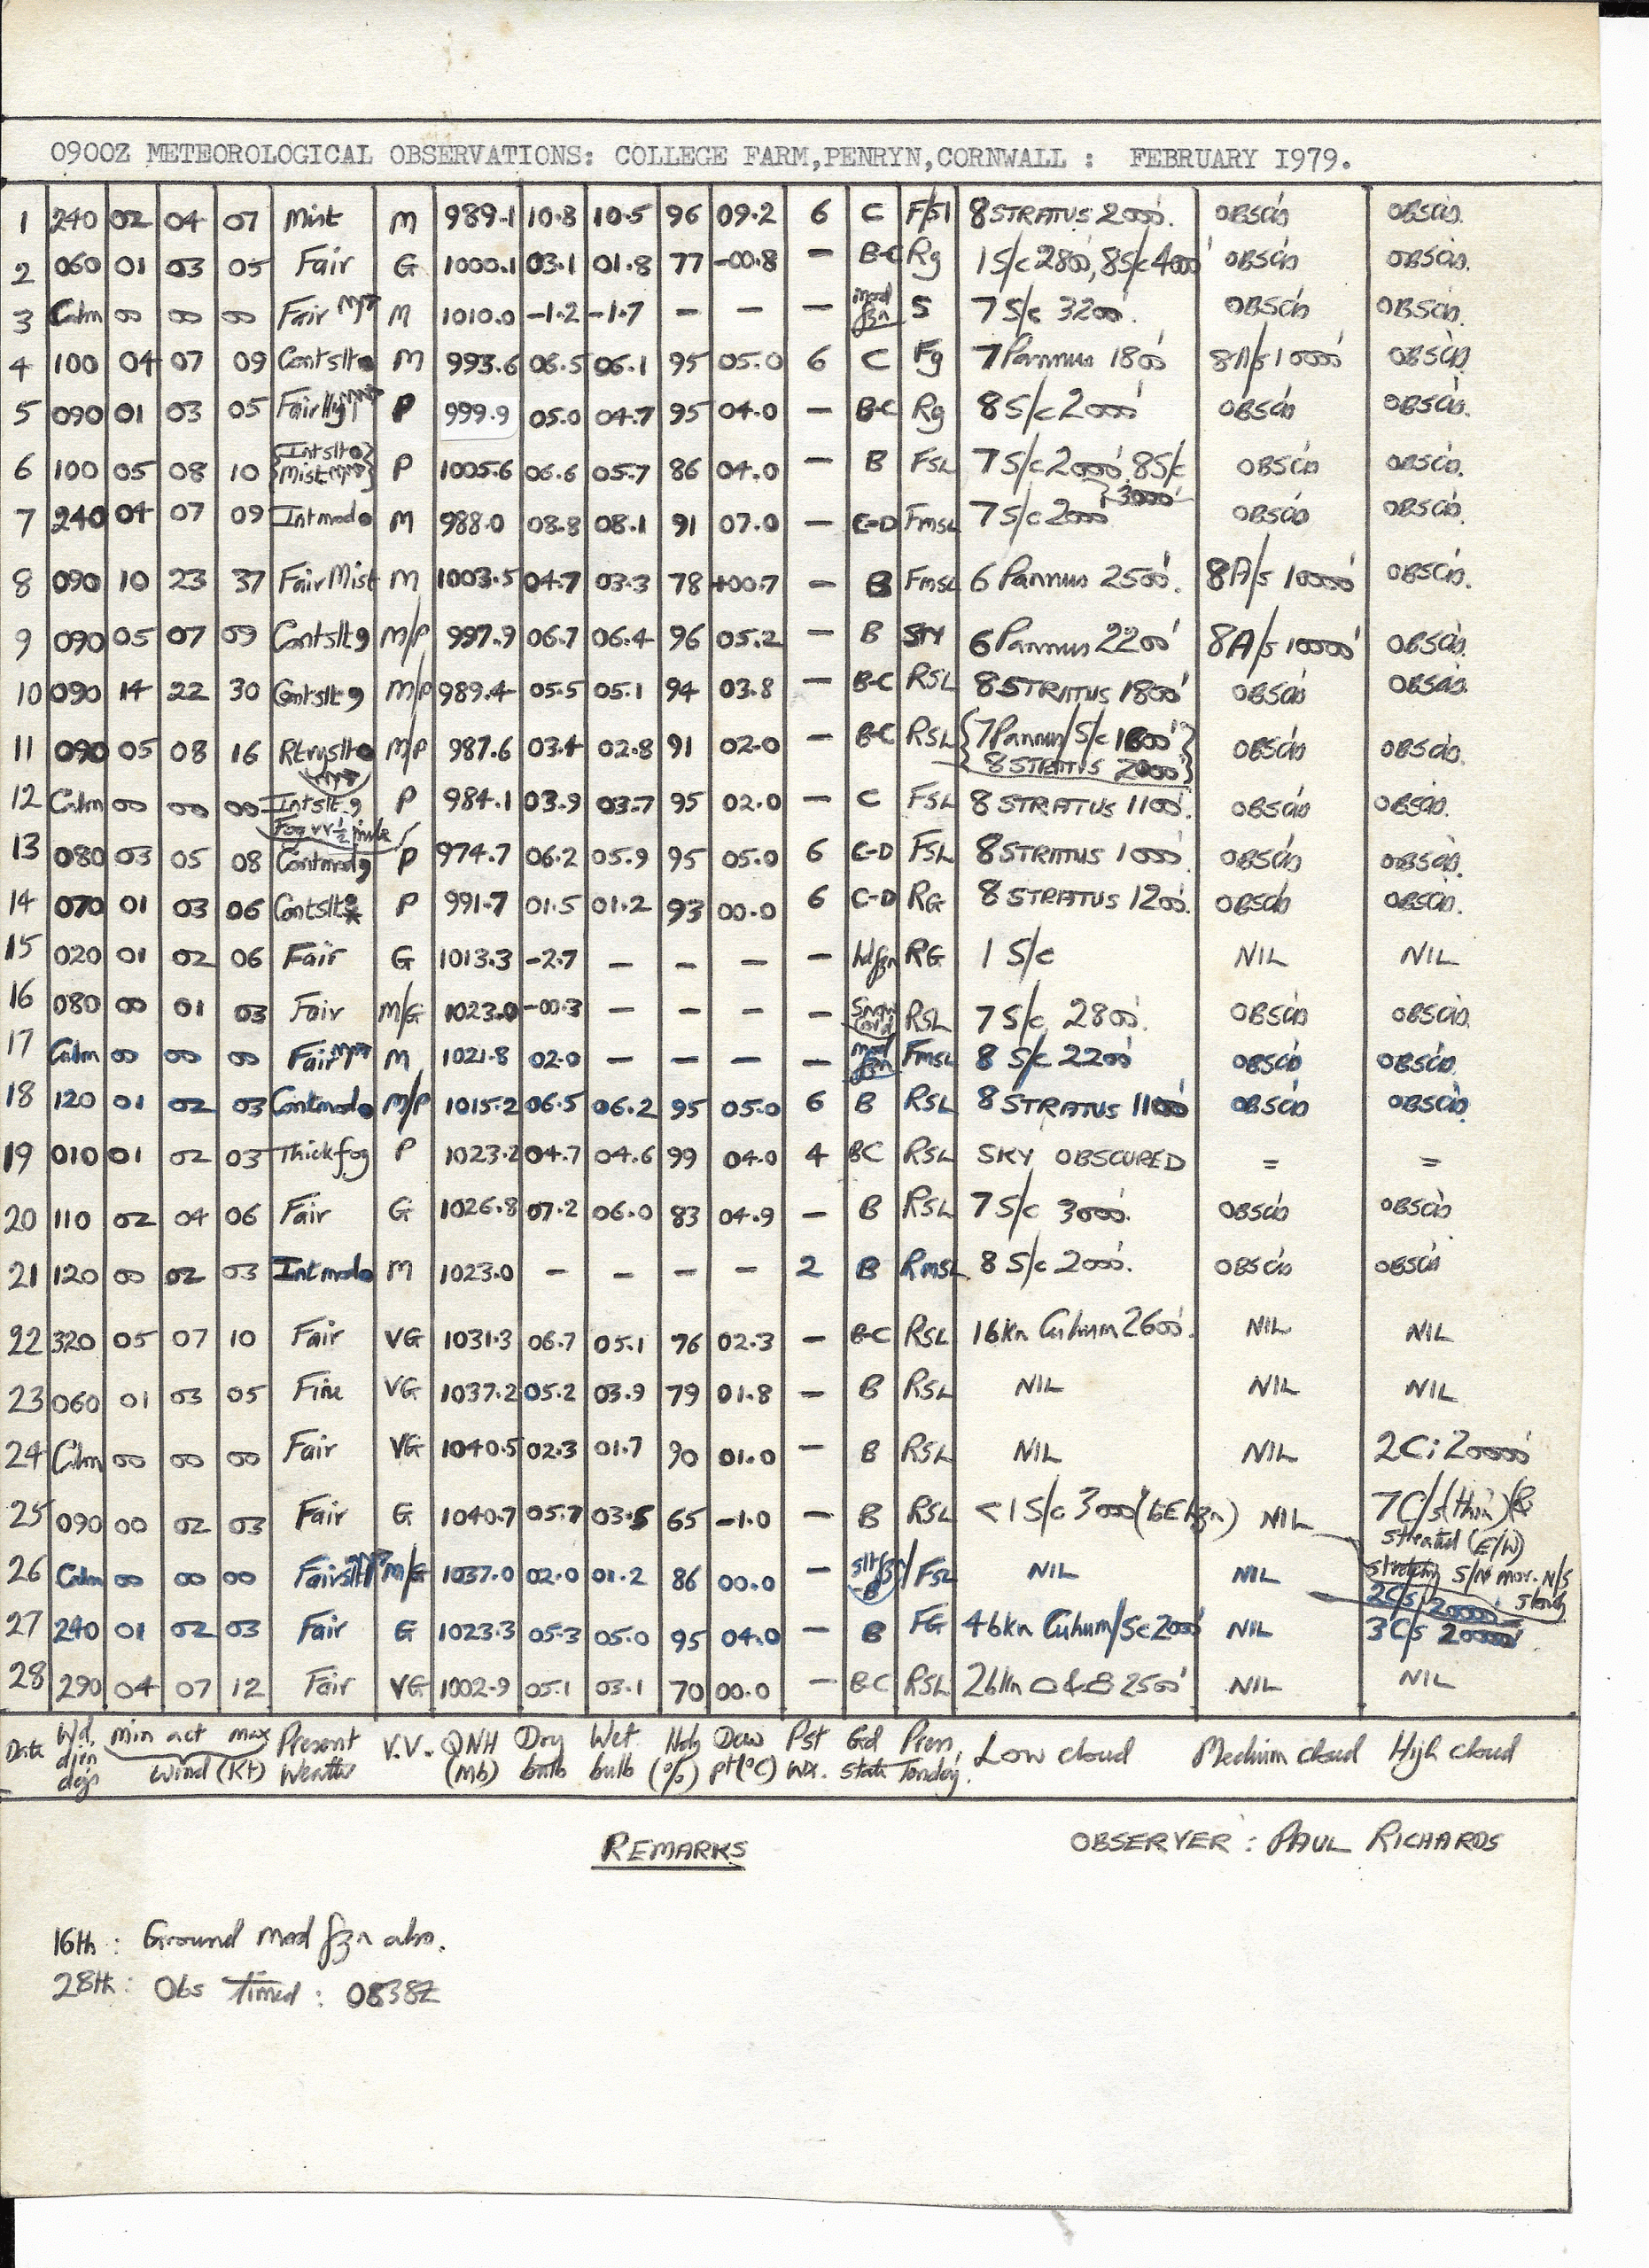 0900Z METEOROLOGICAL OBSERVATIONS: COLLEGE FARM,PENRYN,CORNWALL : FEBRUARY I979.
1 240 02 04 07 Mist M 989.1 10.8 10.5 96 09.2 6 C F/Sl 8 STRATUS 2000'. OBSCD OBSCD.
2 060 01 03 05 Fair G 1000.1 03.1 01.8 77 -00.8 — B-C Rg 1 S/c 2800', 8 S/c 4000' OBSCD OBSCD.
3 Calm 00 00 00 Fair M 1010.0 -1.2 -1.7 — — — mod fzn S 7 S/c 3200'. OBSCD OBSCD.
4 100 04 07 09 Contslt M 993.6 06.5 06.1 95 05.0 6 C Fg 7 Pannus 1800' 8A/s 10000' OBSCD.
5 090 01 03 05 Fair P 999.9 05.0 04.7 95 04.0 — B-C Rg 8 S/c 2000' OBSCD OBSCD.
6 100 05 08 10 {Intslt Mist} P 1005.6 06.6 05.7 86 04.0 — B FSL 7 S/c 2000' 8 S/c }3000' OBSCD OBSCD.
7 240 04 07 09 Intmod M 988.0 08.8 08.1 91 07.0 — C-D FmSL 7 S/c 2000' OBSCD OBSCD.
8 090 10 23 37 Fair Mist M 1003.5 04.7 03.3 78 +00.7 — B FmSL 6 Pannus 2500'. 8A/s 10000' OBSCD.
9 090 05 07 09 Contslt M/P 997.9 06.7 06.4 96 05.2 — B 6 Pannus 2200' 8A/s 10000' OBSCD.
10 090 14 22 30 Contslt M/P 989.4 05.5 05.1 94 03.8 — B-C RSL 8 STRATUS 1800' OBSCD OBSCD.
11 090 05 08 16 M/P 987.6 03.4 02.8 91 02.0 — B-C RSL {7 Pannus/S/c 1800' 8 STRATUS 2000'} OBSCD OBSCD.
12 Calm 00 00 00 Intslt P 984.1 03.9 03.7 95 02.0 — C FSL 8 STRATUS 1100'. OBSCD OBSCD.
Fog VV ½ mile
13 080 03 05 08 Contmod P 974.7 06.2 05.9 95 05.0 6 C-D FSL 8 STRATUS 1000'. OBSCD OBSCD.
14 070 01 03 06 Contslt P 991.7 01.5 01.2 93 00.0 6 C-D RG 8 STRATUS 1200'. OBSCD OBSCD.
15 020 01 02 06 Fair G 1013.3 -2.7 — — — — fzn RG 1 S/c NIL NIL
16 080 00 01 03 Fair M/G 1023.0 -00.3 — — — — Snow RSL 7 S/c 2800'. OBSCD OBSCD.
17 Calm 00 00 00 Fair M 1021.8 02.0 — — — — mod fzn FmSL 8 S/c 2200' OBSCD OBSCD.
18 120 01 02 03 Contmod M/P 1015.2 06.5 06.2 95 05.0 6 B RSL 8 STRATUS 1100' OBSCD OBSCD.
19 010 01 02 03 Thick fog P 1023.2 04.7 04.6 99 04.0 4 BC RSL SKY OBSCURED = =
20 110 02 04 06 Fair G 1026.8 07.2 06.0 83 04.9 — B RSL 7 S/c 3000'. OBSCD OBSCD
21 120 00 02 03 Intmod M 1023.0 — — — — 2 B RmSL 8 S/c 2000'. OBSCD OBSCD
22 320 05 07 10 Fair VG 1031.3 06.7 05.1 76 02.3 — B-C RSL 1 bkn Cuhum 2600'. NIL NIL
23 060 01 03 05 Fine VG 1037.2 05.2 03.9 79 01.8 — B RSL NIL NIL NIL
24 Calm 00 00 00 Fair VG 1040.5 02.3 01.7 90 01.0 — B RSL NIL NIL 2 Ci 20000'
25 090 00 02 03 Fair G 1040.7 05.7 03.5 65 -1.0 — B RSL <1 S/c 3000' NIL 7 C/s (thin) &
streated (E/W)
stretching S/N mov. N/S slowly
26 Calm 00 00 00 Fair M/G 1037.0 02.0 01.2 86 00.0 — slt fzn B FSL NIL NIL 2 Cs 20000'
27 240 01 02 03 Fair G 1023.3 05.3 05.0 95 04.0 — B FG 4 bkn Cuhum/Sc 2000' NIL 3 C/s 20000'
28 290 04 07 12 Fair VG 1002.9 05.1 03.1 70 00.0 — B-C RSL 2 bkn 2500' NIL NIL
Date Wd. dirn degs min act max Wind (Kt) Present Weather V.V. QNH (Mb) Dry bulb Wet bulb Hdy (%) Dew pt (°C) Pst wx. Gd state Press. Tendcy. Low cloud Medium cloud High cloud
REMARKS
OBSERVER : PAUL RICHARDS
16th : Ground mod fzn also.
28th : Obs Timed : 0838Z